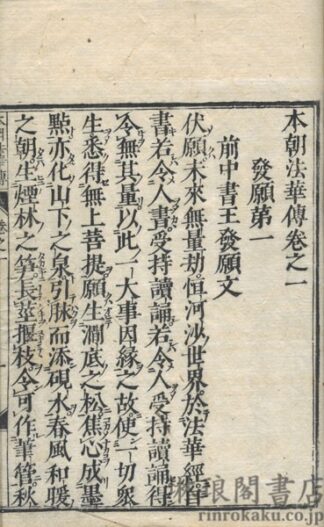 本朝法華傳卷之一
發願第一
前中書王發願文
伏願未來無量劫恒河沙世界於法華經自
書若令人書受持讀誦若令人受持讀誦得
令無其量以此一大事因緣之故使一切衆
生悉得無上菩提願生澗底之松焦心成墨
點亦化山下之泉引脉而添硯水春風和暖
之朝生煙林之笋長莖握枝令可作筆管秋
本朝法華傳 卷之一
琳琅閣書店
rinrokaku.co.jp